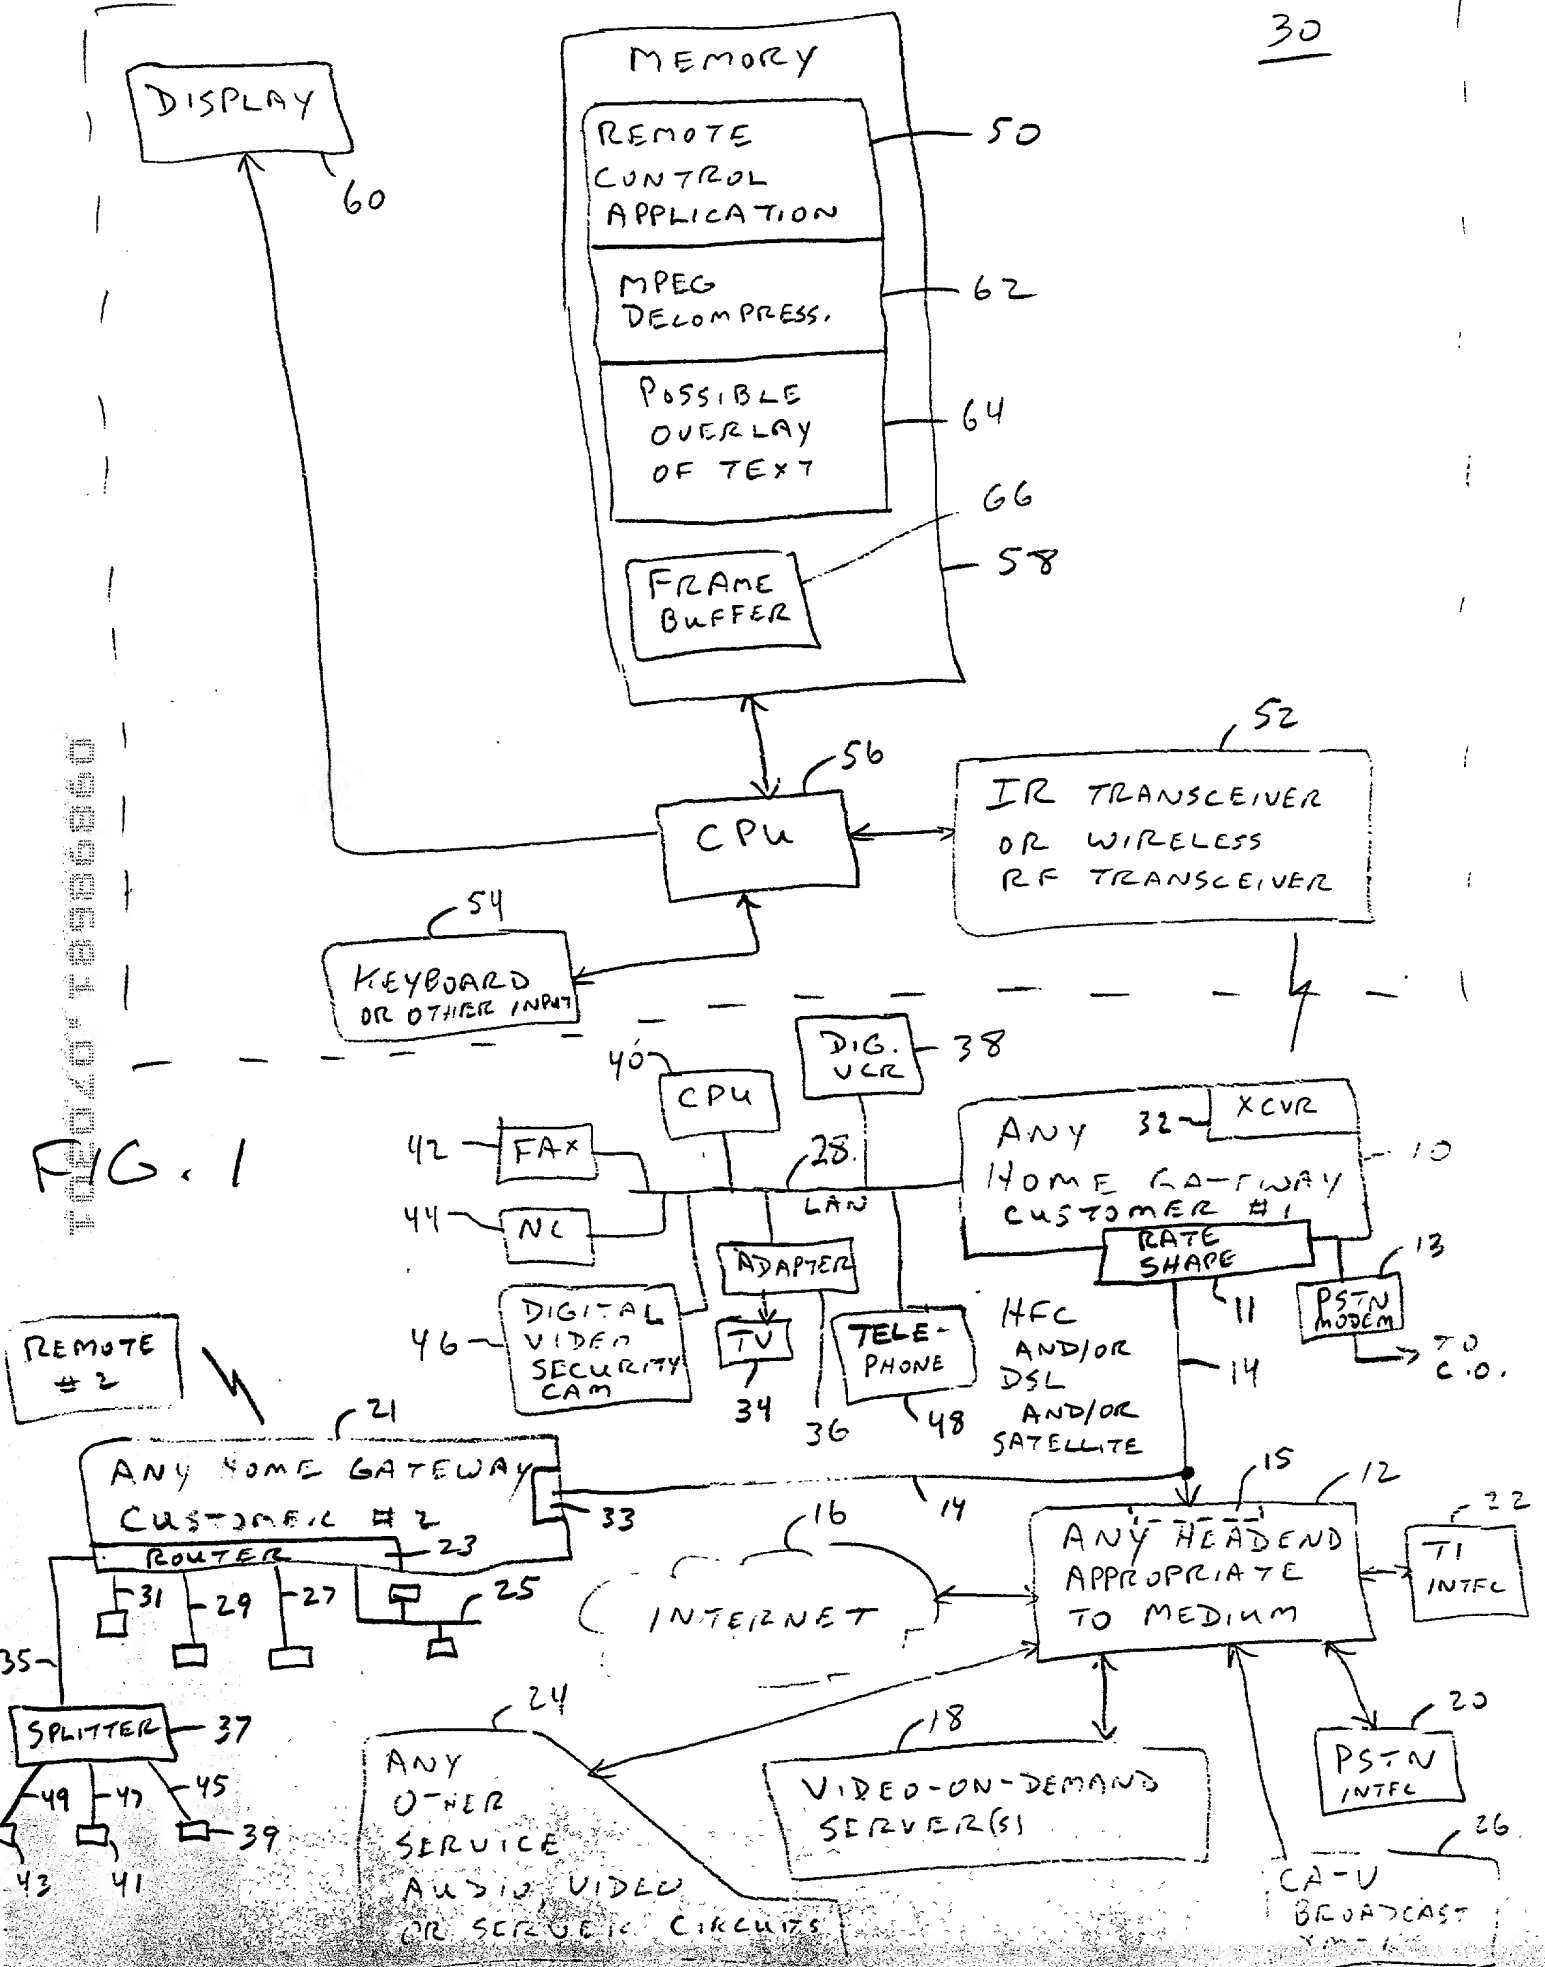 30
DISPLAY
60
MEMORY
REMOTE
CONTROL
APPLICATION
50
MPEG
DECOMPRESS.
62
POSSIBLE
OVERLAY
OF TEXT
64
66
FRAME
BUFFER
58
52
56
CPU
IR TRANSCEIVER
OR WIRELESS
RF TRANSCEIVER
54
KEYBOARD
OR OTHER INPUT
FIG. 1
40
CPU
DIG.
VCR
38
42
FAX
28.
LAN
44
NC
ANY
32
XCVR
HOME GATEWAY
CUSTOMER #1
10
RATE
SHAPE
11
13
PSTN
MODEM
TO
C.O.
ADAPTER
36
TV
34
46
DIGITAL
VIDEO
SECURITY
CAM
TELE-
PHONE
48
HFC
AND/OR
DSL
AND/OR
SATELLITE
14
REMOTE
#2
21
ANY HOME GATEWAY
CUSTOMER #2
33
ROUTER
23
31
29
27
25
35
SPLITTER
37
49
47
45
43
41
39
14
16
INTERNET
15
12
ANY HEADEND
APPROPRIATE
TO MEDIUM
22
T1
INTFC
24
ANY
OTHER
SERVICE
AUDIO, VIDEO
OR SERVER CIRCUITS
18
VIDEO-ON-DEMAND
SERVER(S)
20
PSTN
INTFC
26
BROADCAST